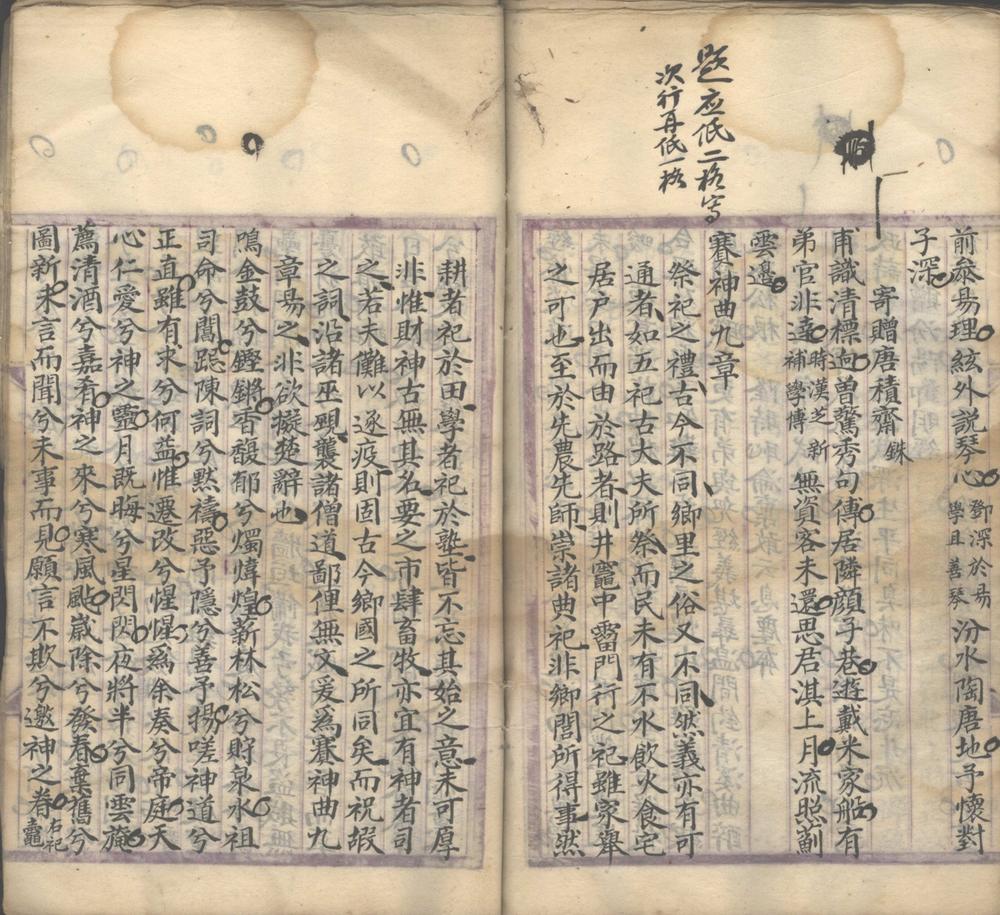 題应低二格寫
次行再低一格
前叅易理絃外説琴心鄧深於易學且善琴汾水陶唐地予懷對
子深
寄贈唐積齋銖
甫識清標逈曽驚秀句傳居隣顔子巷遊戴米家船有
弟官非遠時漢芝新補學博無資客未還思君淇上月流照薊
雲邉
賽神曲九章
祭祀之禮古今不同鄉里之俗又不同然義亦有可
通者如五祀古大夫所祭而民未有不水飲火食宅
居户出而由於路者則井竈中霤門行之祀雖家舉
之可也至於先農先師崇諸典祀非鄉閭所得事然
耕者祀於田學者祀於塾皆不忘其始之意未可厚
非惟財神古無其名要之市肆畜牧亦宜有神者司
之若夫儺以逐疫則固古今鄉國之所同矣而祝嘏
之詞沿諸巫覡襲諸僧道鄙俚無文爰爲賽神曲九
章易之非欲擬楚辭也
鳴金鼓兮鏗鏘香馥郁兮燭煒煌薪林松兮貯泉水祖
司命兮閶跽陳詞兮黙禱惡予隱兮善予揚嗟神道兮
正直雖有求兮何益惟遷改兮惺惺爲余奏兮帝庭天
心仁愛兮神之靈月既晦兮星閃閃夜將半兮同雲旑
薦清酒兮嘉肴神之來兮寒風颭嵗除兮發春棄舊兮
圖新未言而聞兮未事而見願言不欺兮邀神之眷右祀竈